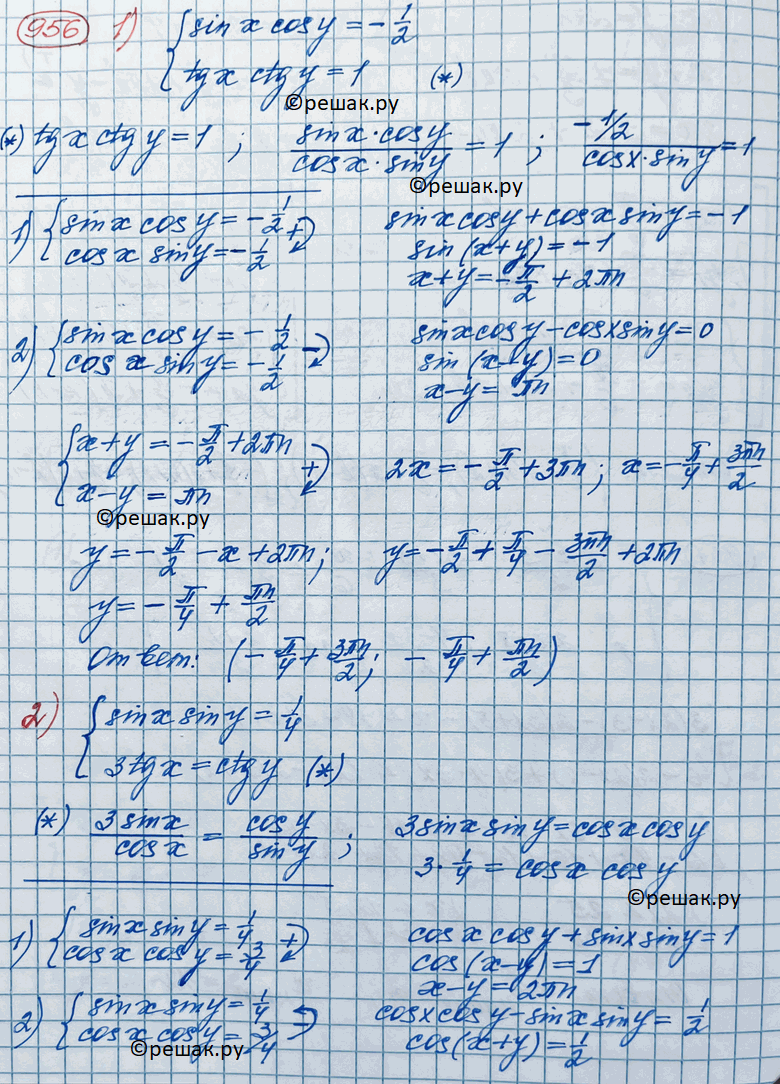 956 1) { sin x cos y = -1/2
tg x ctg y = 1 (*)
©решак.ру
(*) tg x ctg y = 1 ; sin x · cos y / cos x · sin y = 1 ; -1/2 / cos x · sin y = 1
©решак.ру
1) { sin x cos y = -1/2 + sin x cos y + cos x sin y = -1
cos x sin y = -1/2 sin (x+y) = -1
x+y = -π/2 + 2πn
2) { sin x cos y = -1/2 - sin x cos y - cos x sin y = 0
cos x sin y = -1/2 sin (x-y) = 0
x-y = πn
{ x+y = -π/2 + 2πn + 2x = -π/2 + 3πn ; x = -π/4 + 3πn/2
x-y = πn
©решак.ру
y = -π/2 - x + 2πn ; y = -π/2 + π/4 - 3πn/2 + 2πn
y = -π/4 + πn/2
Ответ: (-π/4 + 3πn/2 ; -π/4 + πn/2)
2) { sin x sin y = 1/4
3tg x = ctg y (*)
(*) 3 sin x / cos x = cos y / sin y ; 3 sin x sin y = cos x cos y
3 · 1/4 = cos x cos y
©решак.ру
1) { sin x sin y = 1/4 + cos x cos y + sin x sin y = 1
cos x cos y = 3/4 cos (x-y) = 1
x-y = 2πn
2) { sin x sin y = 1/4 - cos x cos y - sin x sin y = 1/2
cos x cos y = 3/4 cos (x+y) = 1/2
©решак.ру